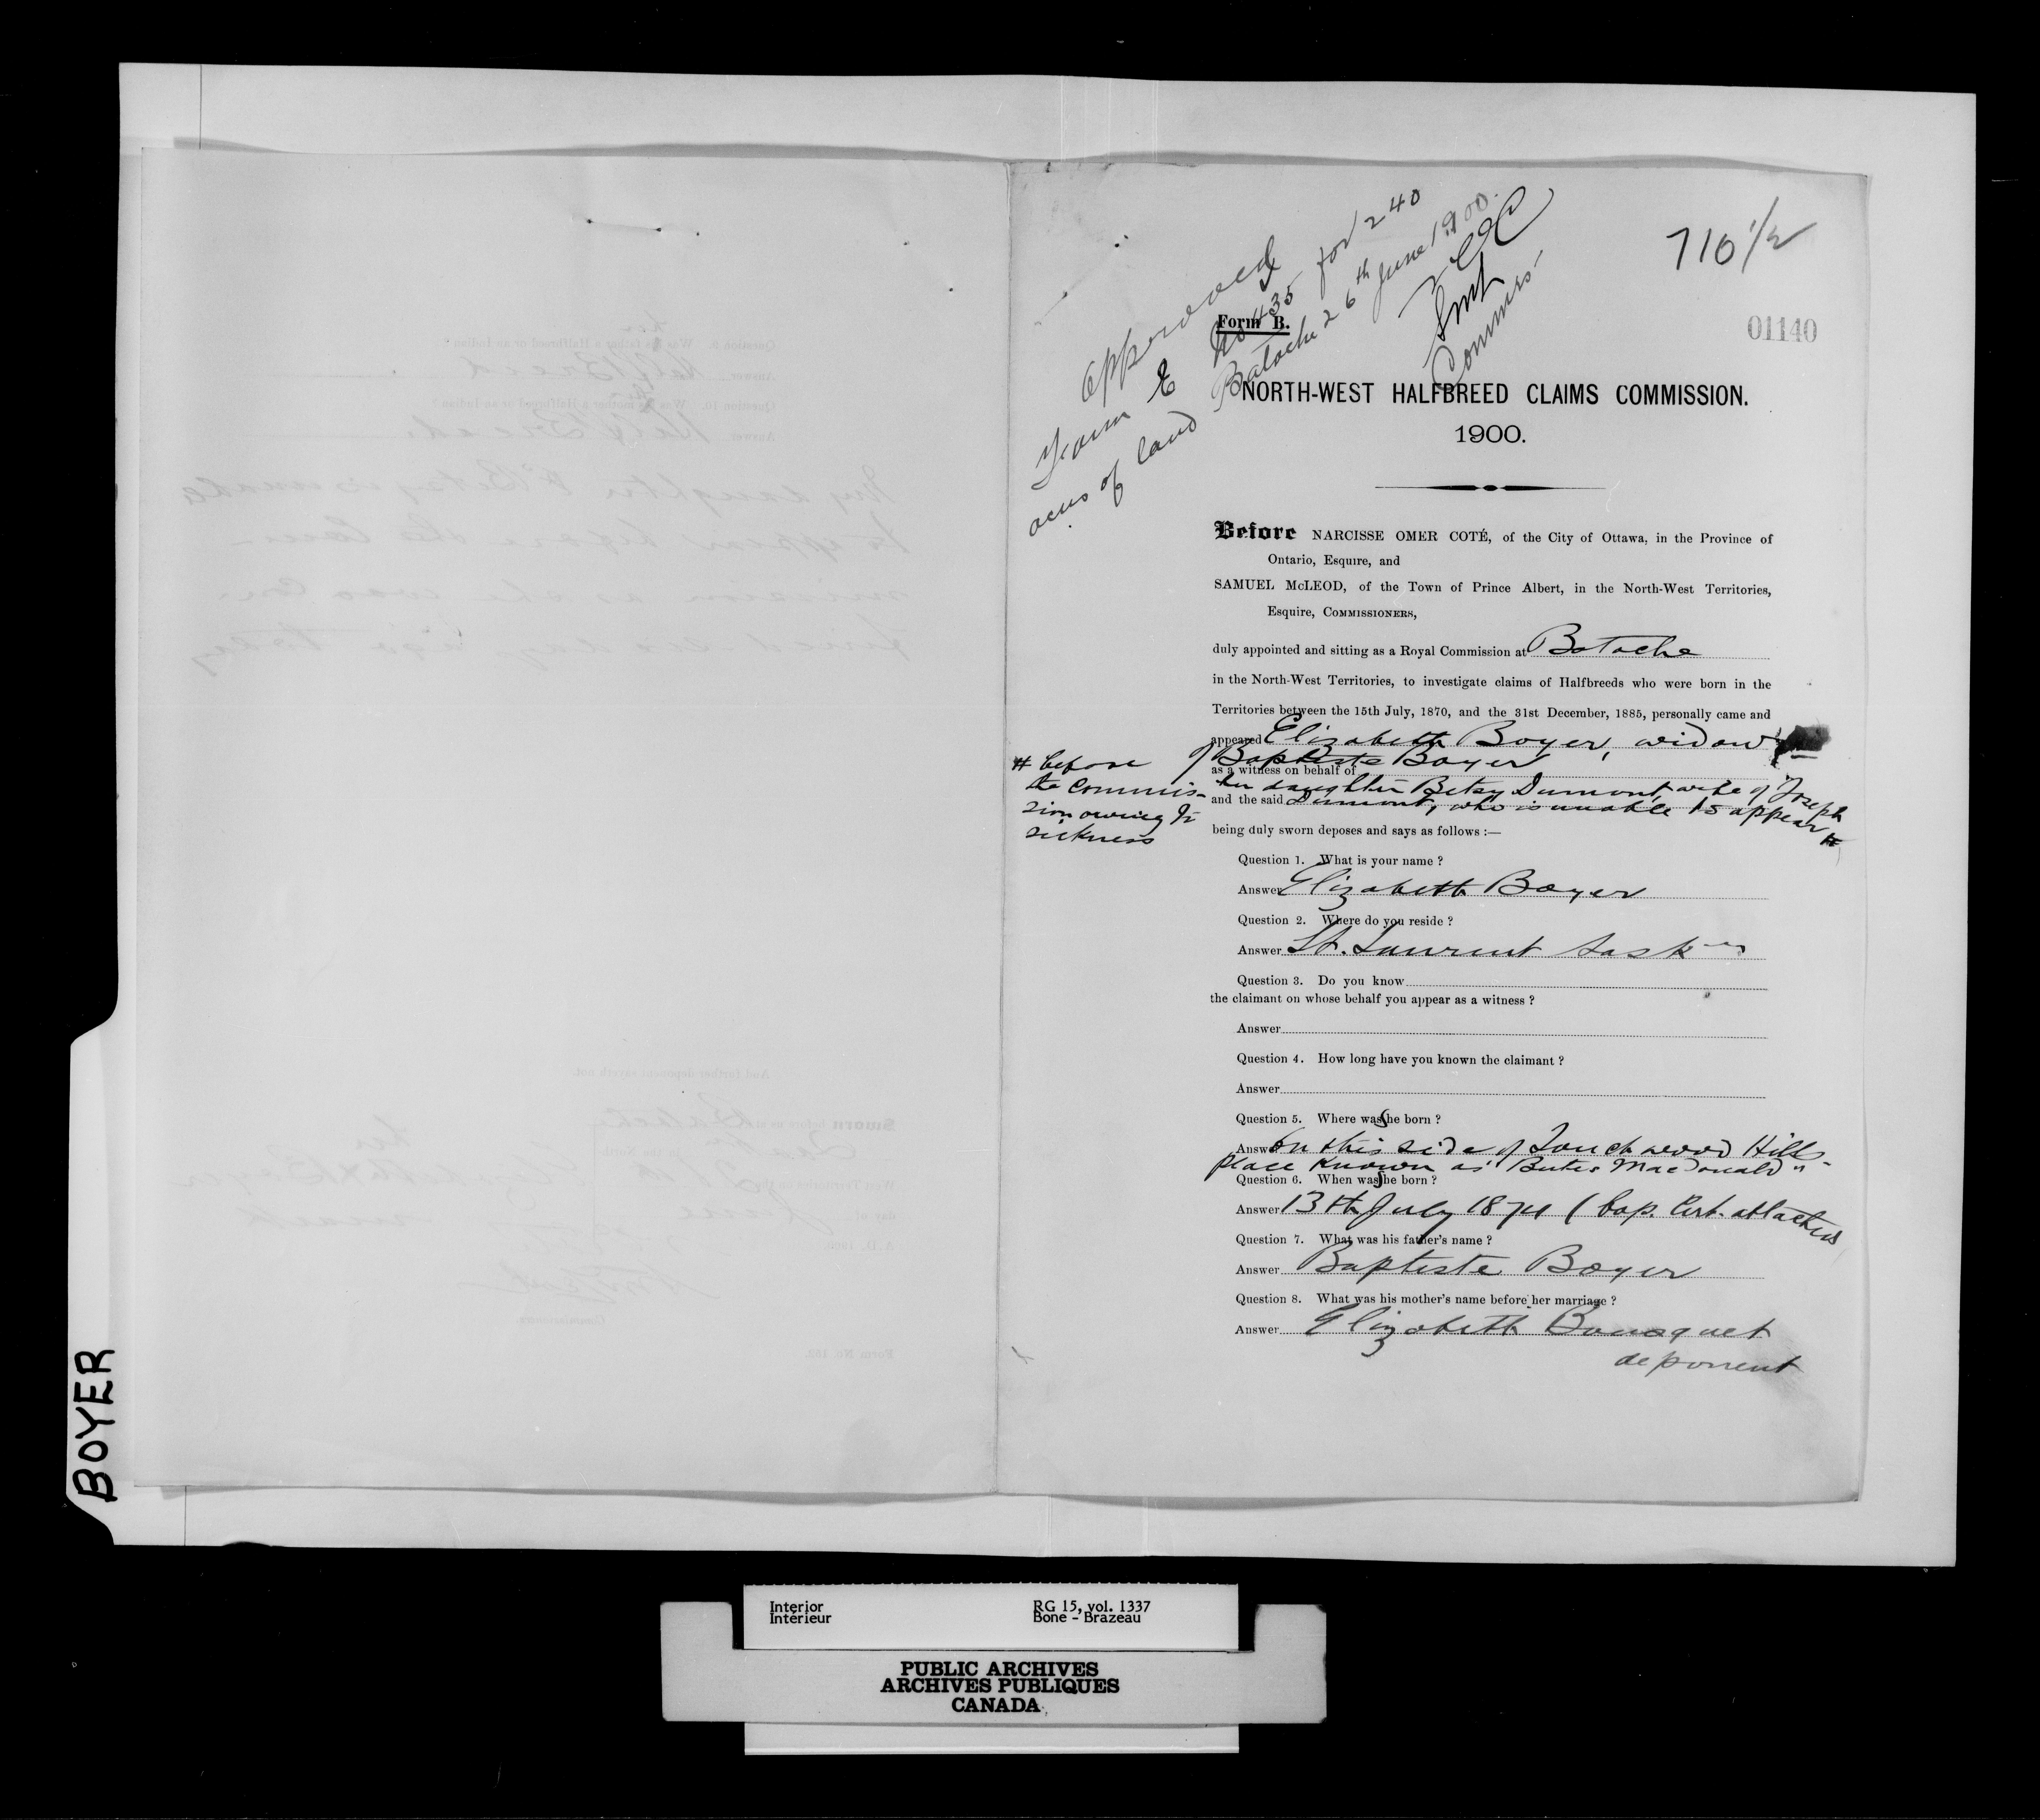 710 1/2
01140
Approved
Form E No 435 for 240
acres of land Batoche 26th June 1900.
Commrs.
Form B.
NORTH-WEST HALFBREED CLAIMS COMMISSION.
1900.
Before NARCISSE OMER COTÉ, of the City of Ottawa, in the Province of
Ontario, Esquire, and
SAMUEL McLEOD, of the Town of Prince Albert, in the North-West Territories,
Esquire, COMMISSIONERS,
duly appointed and sitting as a Royal Commission at Batoche
in the North-West Territories, to investigate claims of Halfbreeds who were born in the
Territories between the 15th July, 1870, and the 31st December, 1885, personally came and
appeared Elizabeth Boyer, widow
of Baptiste Boyer
as a witness on behalf of
her daughter Betsy Dumont, wife of Joseph
and the said Dumont, who is unable to appear #
# before
the Commis-
sion owing to
sickness
being duly sworn deposes and says as follows :—
Question 1. What is your name ?
Answer Elizabeth Boyer
Question 2. Where do you reside ?
Answer St. Laurent Sask
Question 3. Do you know
the claimant on whose behalf you appear as a witness ?
Answer
Question 4. How long have you known the claimant ?
Answer
Question 5. Where was she born ?
Answer On this side of Touchwood Hills
place known as "Butes MacDonald"
Question 6. When was she born ?
Answer 13th July 1874 (bap. Cert. attached
Question 7. What was his father's name ?
Answer Baptiste Boyer
Question 8. What was his mother's name before her marriage ?
Answer Elizabeth Bousquet
deponent
BOYER
Interior
Intérieur
RG 15, vol. 1337
Bone - Brazeau
PUBLIC ARCHIVES
ARCHIVES PUBLIQUES
CANADA